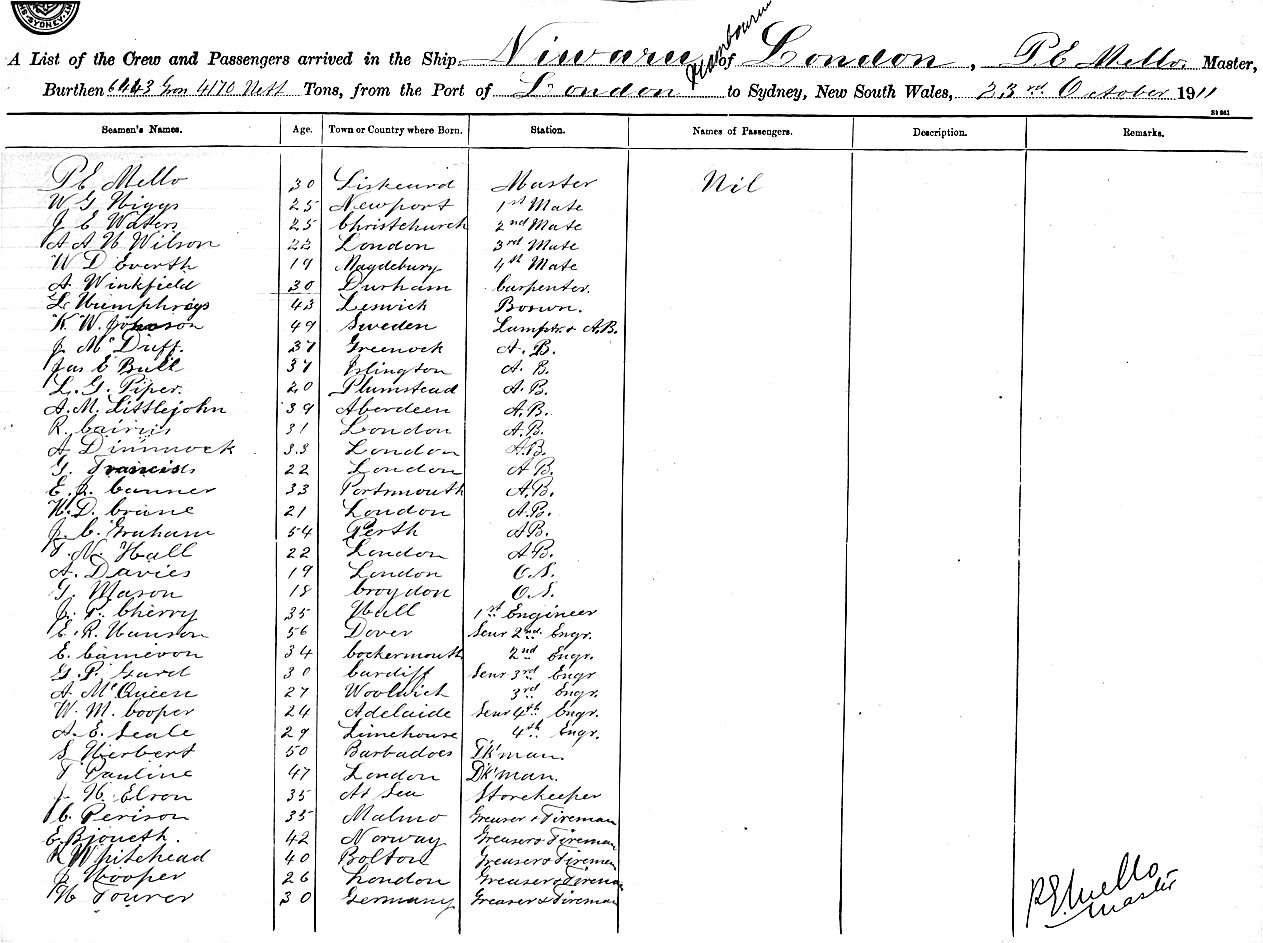 SYDNEY
Melbourne
A List of the Crew and Passengers arrived in the Ship Niwaru of London, P E Mello Master,
Burthen 6443 Gross 4170 Nett Tons, from the Port of London to Sydney, New South Wales, 23rd October 1911
S1961
Seamen's Names. Age. Town or Country where Born. Station. Names of Passengers. Description. Remarks.
P E Mello 30 Liskeard Master Nil
W G Higgs 25 Newport 1st Mate
J E Waters 25 Christchurch 2nd Mate
A A H Wilson 22 London 3rd Mate
W D Everth 19 Magdeburg 4th Mate
A Winkfield 30 Durham Carpenter.
L Humphreys 43 Leswick Boswn.
K W. Johnson 49 Sweden Lamptr & A.B.
J. McDuff. 37 Greenock A. B.
Jas E Bull 37 Islington A. B.
L. G. Piper. 20 Plumstead A.B.
A. M. Littlejohn 39 Aberdeen A.B.
R. Cairns 31 London A.B.
A Dimmock 33 London A.B.
G. Francis 22 London A B.
E. J. Canner 33 Portsmouth A.B.
W. D. Crane 21 London A.B.
J. C. Graham 54 Perth A B.
T. N. Hall 22 London A B.
A. Davies 19 London O.S.
G. Mason 18 Croydon O.S.
J. P. Cherry 35 Hull 1st Engineer
E. R. Hanson 56 Dover Senr 2nd Engr.
E. Cameron 34 Cockermouth 2nd Engr.
G. P. Gard 30 Cardiff Senr 3rd Engr
A McQueen 27 Woolwich 3rd Engr.
W. M. Cooper 24 Adelaide Senr 4th Engr.
A. E. Seale 29 Limehouse 4th Engr.
S Herbert 50 Barbadoes D'k'man.
T Pauline 47 London D'k'man.
J H. Elson 35 At Sea Storekeeper
C. Perison 35 Malmo Greaser & Fireman
E. Bjoneth. 42 Norway Greaser & Fireman
Whitehead 40 Bolton Greaser & Fireman
J Hooper 26 London Greaser & Fireman
H Fourer 30 Germany Greaser & Fireman
P. E. Mello
Master